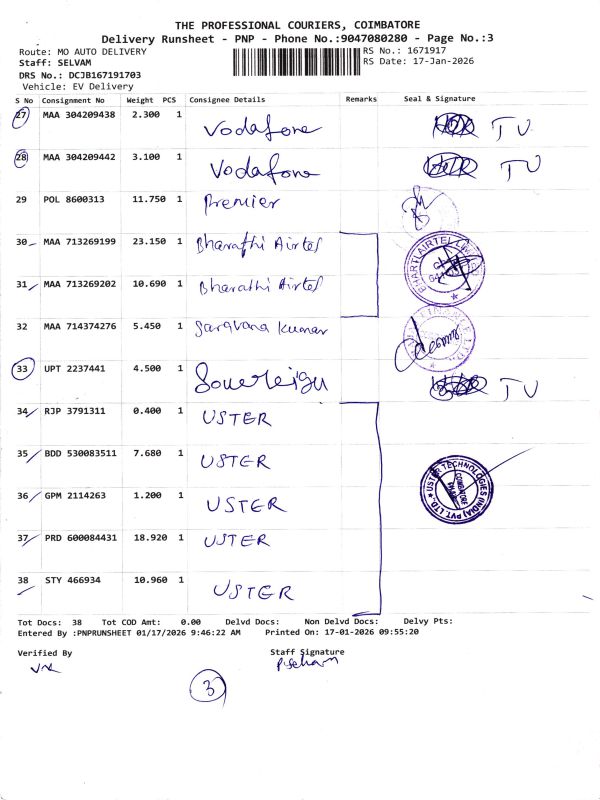 THE PROFESSIONAL COURIERS, COIMBATORE
Delivery Runsheet - PNP - Phone No.:9047080280 - Page No.:3
Route: MO AUTO DELIVERY RS No.: 1671917
Staff: SELVAM RS Date: 17-Jan-2026
DRS No.: DCJB167191703
Vehicle: EV Delivery
S No Consignment No Weight PCS Consignee Details Remarks Seal & Signature
27 MAA 304209438 2.300 1 Vodafone TV
28 MAA 304209442 3.100 1 Vodafone TV
29 POL 8600313 11.750 1 Premier
30 MAA 713269199 23.150 1 Bharathi Airtel
BHARTI AIRTEL LIMITED
31 MAA 713269202 10.690 1 Bharathi Airtel
32 MAA 714374276 5.450 1 Saravana Kumar
33 UPT 2237441 4.500 1 Sovereign TV
34 RJP 3791311 0.400 1 USTER
35 BDD 530083511 7.680 1 USTER
USTER TECHNOLOGIES (INDIA) PVT. LTD.
COIMBATORE
36 GPM 2114263 1.200 1 USTER
37 PRD 600084431 18.920 1 USTER
38 STY 466934 10.960 1 USTER
Tot Docs: 38 Tot COD Amt: 0.00 Delvd Docs: Non Delvd Docs: Delvy Pts:
Entered By :PNPRUNSHEET 01/17/2026 9:46:22 AM Printed On: 17-01-2026 09:55:20
Verified By Staff Signature
3